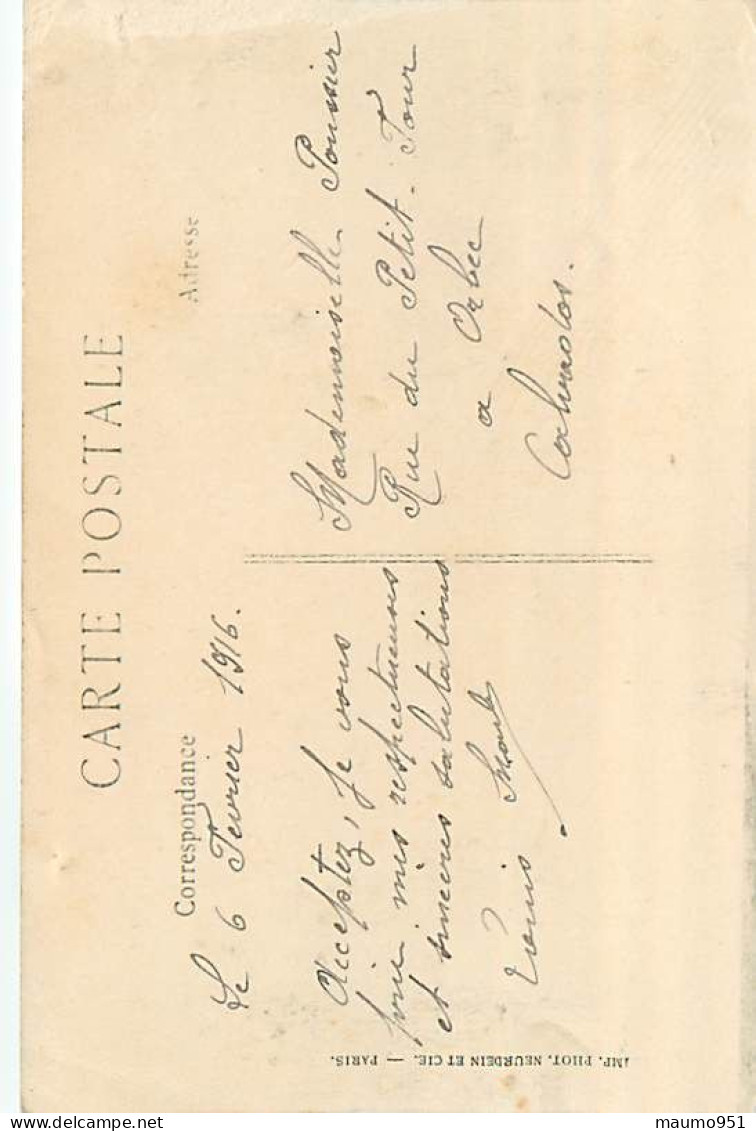 CARTE POSTALE
Correspondance
Le 6 Fevrier 1916.
Acceptez, je vous
prie mes respectueuses
et sincères salutations
Louis
Adresse
Mademoiselle
Rue du Petit-Four
a Orbec
Calvados.
IMP. PHOT. NEURDEIN ET CIE. — PARIS.
maumo951